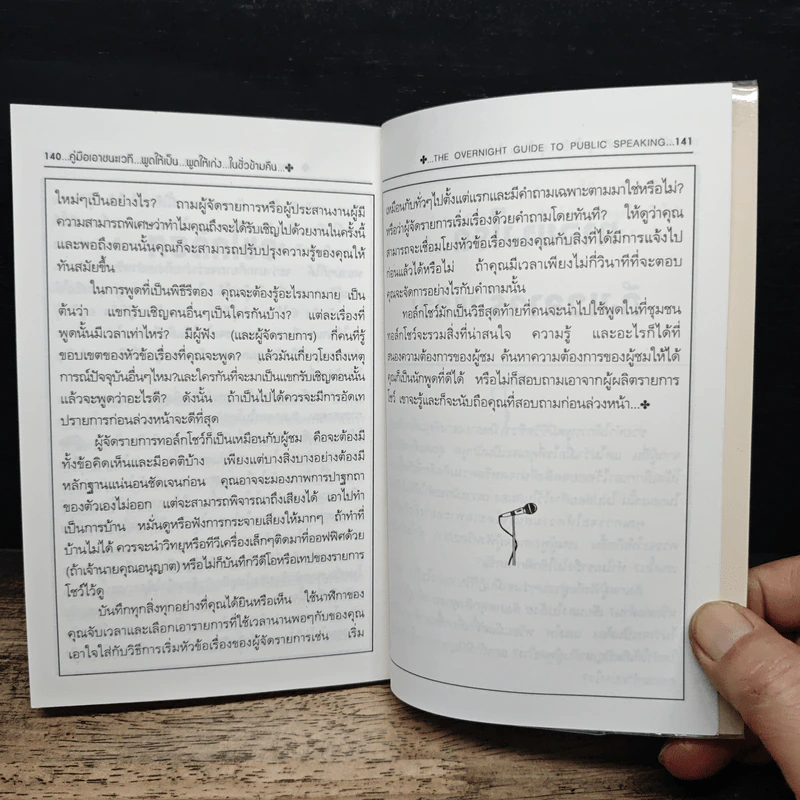 140...คู่มือเอาชนะเวที...พูดให้เป็น...พูดให้เก่ง...ในชั่วข้ามคืน...✤
ใหม่ๆเป็นอย่างไร? ถามผู้จัดรายการหรือผู้ประสานงานผู้มี
ความสามารถพิเศษว่าทำไมคุณถึงจะได้รับเชิญไปด้วยงานในครั้งนี้
และพอถึงตอนนั้นคุณก็จะสามารถปรับปรุงความรู้ของคุณให้
ทันสมัยขึ้น
ในการพูดที่เป็นพิธีรีตอง คุณจะต้องรู้อะไรมากมาย เป็น
ต้นว่า แขกรับเชิญคนอื่นๆเป็นใครกันบ้าง? แต่ละเรื่องที่
พูดนั้นมีเวลาเท่าไหร่? มีผู้ฟัง (และผู้จัดรายการ) กี่คนที่รู้
ขอบเขตของหัวข้อเรื่องที่คุณจะพูด? แล้วมันเกี่ยวโยงถึงเหตุ
การณ์ปัจจุบันอื่นๆไหม?และใครกันที่จะมาเป็นแขกรับเชิญตอนนั้น
แล้วจะพูดว่าอะไรดี? ดังนั้น ถ้าเป็นไปได้ควรจะมีการอัดเท
ปรายการก่อนล่วงหน้าจะดีที่สุด
ผู้จัดรายการทอล์กโชว์ก็เป็นเหมือนกับผู้ชม คือจะต้องมี
ทั้งข้อคิดเห็นและมีอคติบ้าง เพียงแต่บางสิ่งบางอย่างต้องมี
หลักฐานแน่นอนชัดเจนก่อน คุณอาจจะมองภาพการปาฐกถา
ของตัวเองไม่ออก แต่จะสามารถพิจารณาถึงเสียงได้ เอาไปทำ
เป็นการบ้าน หมั่นดูหรือฟังการกระจายเสียงให้มากๆ ถ้าทำที่
บ้านไม่ได้ ควรจะนำวิทยุหรือทีวีเครื่องเล็กๆติดมาที่ออฟฟิศด้วย
(ถ้าเจ้านายคุณอนุญาต) หรือไม่ก็บันทึกวีดีโอหรือเทปของรายการ
โชว์ไว้ดู
บันทึกทุกสิ่งทุกอย่างที่คุณได้ยินหรือเห็น ใช้นาฬิกาของ
คุณจับเวลาและเลือกเอารายการที่ใช้เวลานานพอๆกับของคุณ
เอาใจใส่กับวิธีการเริ่มหัวข้อเรื่องของผู้จัดรายการเช่น เริ่ม
✤...THE OVERNIGHT GUIDE TO PUBLIC SPEAKING...141
เหมือนกับทั่วๆไปตั้งแต่แรกและมีคำถามเฉพาะตามมาใช่หรือไม่?
หรือว่าผู้จัดรายการเริ่มเรื่องด้วยคำถามโดยทันที? ให้ดูว่าคุณ
สามารถจะเชื่อมโยงหัวข้อเรื่องของคุณกับสิ่งที่ได้มีการแจ้งไป
ก่อนแล้วได้หรือไม่ ถ้าคุณมีเวลาเพียงไม่กี่วินาทีที่จะตอบ
คุณจะจัดการอย่างไรกับคำถามนั้น
ทอล์กโชว์มักเป็นวิธีสุดท้ายที่คนจะนำไปใช้พูดในที่ชุมชน
ทอล์กโชว์จะรวมสิ่งที่น่าสนใจ ความรู้ และอะไรก็ได้ที่
สนองความต้องการของผู้ชม ค้นหาความต้องการของผู้ชมให้ได้
คุณก็เป็นนักพูดที่ดีได้ หรือไม่ก็สอบถามเอาจากผู้ผลิตรายการ
โชว์ เขาจะรู้และก็จะนับถือคุณที่สอบถามก่อนล่วงหน้า...✤